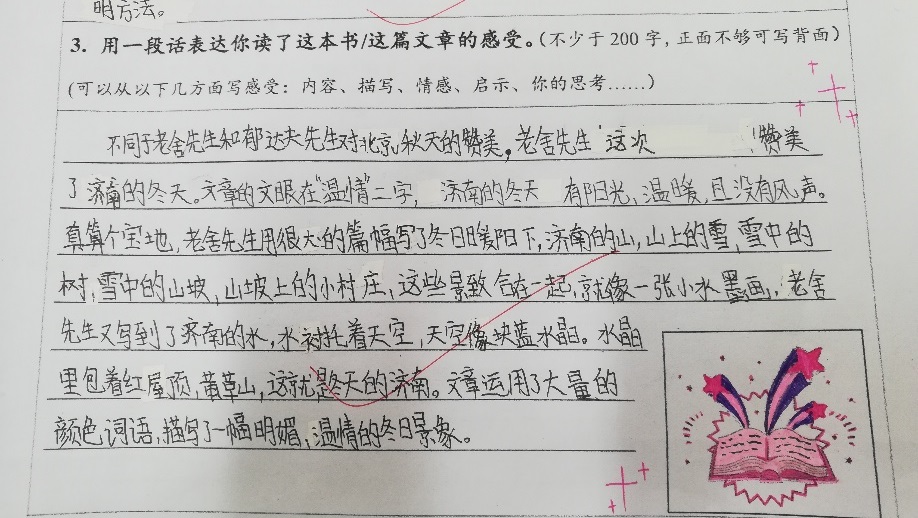 明方法。
3. 用一段话表达你读了这本书/这篇文章的感受。(不少于200字,正面不够可写背面)
(可以从以下几方面写感受:内容、描写、情感、启示、你的思考……)
不同于老舍先生和郁达夫先生对北京秋天的赞美,老舍先生 这次 赞美
了济南的冬天。文章的文眼在"温情"二字, 济南的冬天 有阳光,温暖,且没有风声。
真算个宝地,老舍先生用很大的篇幅写了冬日暖阳下,济南的山,山上的雪,雪中的
树,雪中的山坡,山坡上的小村庄,这些景致合在一起,就像一张小水墨画,老舍
先生又写到了济南的水,水衬托着天空,天空像块蓝水晶。水晶
里包着红屋顶,黄草山,这就是冬天的济南。文章运用了大量的
颜色词语,描写了一幅明媚,温情的冬日景象。